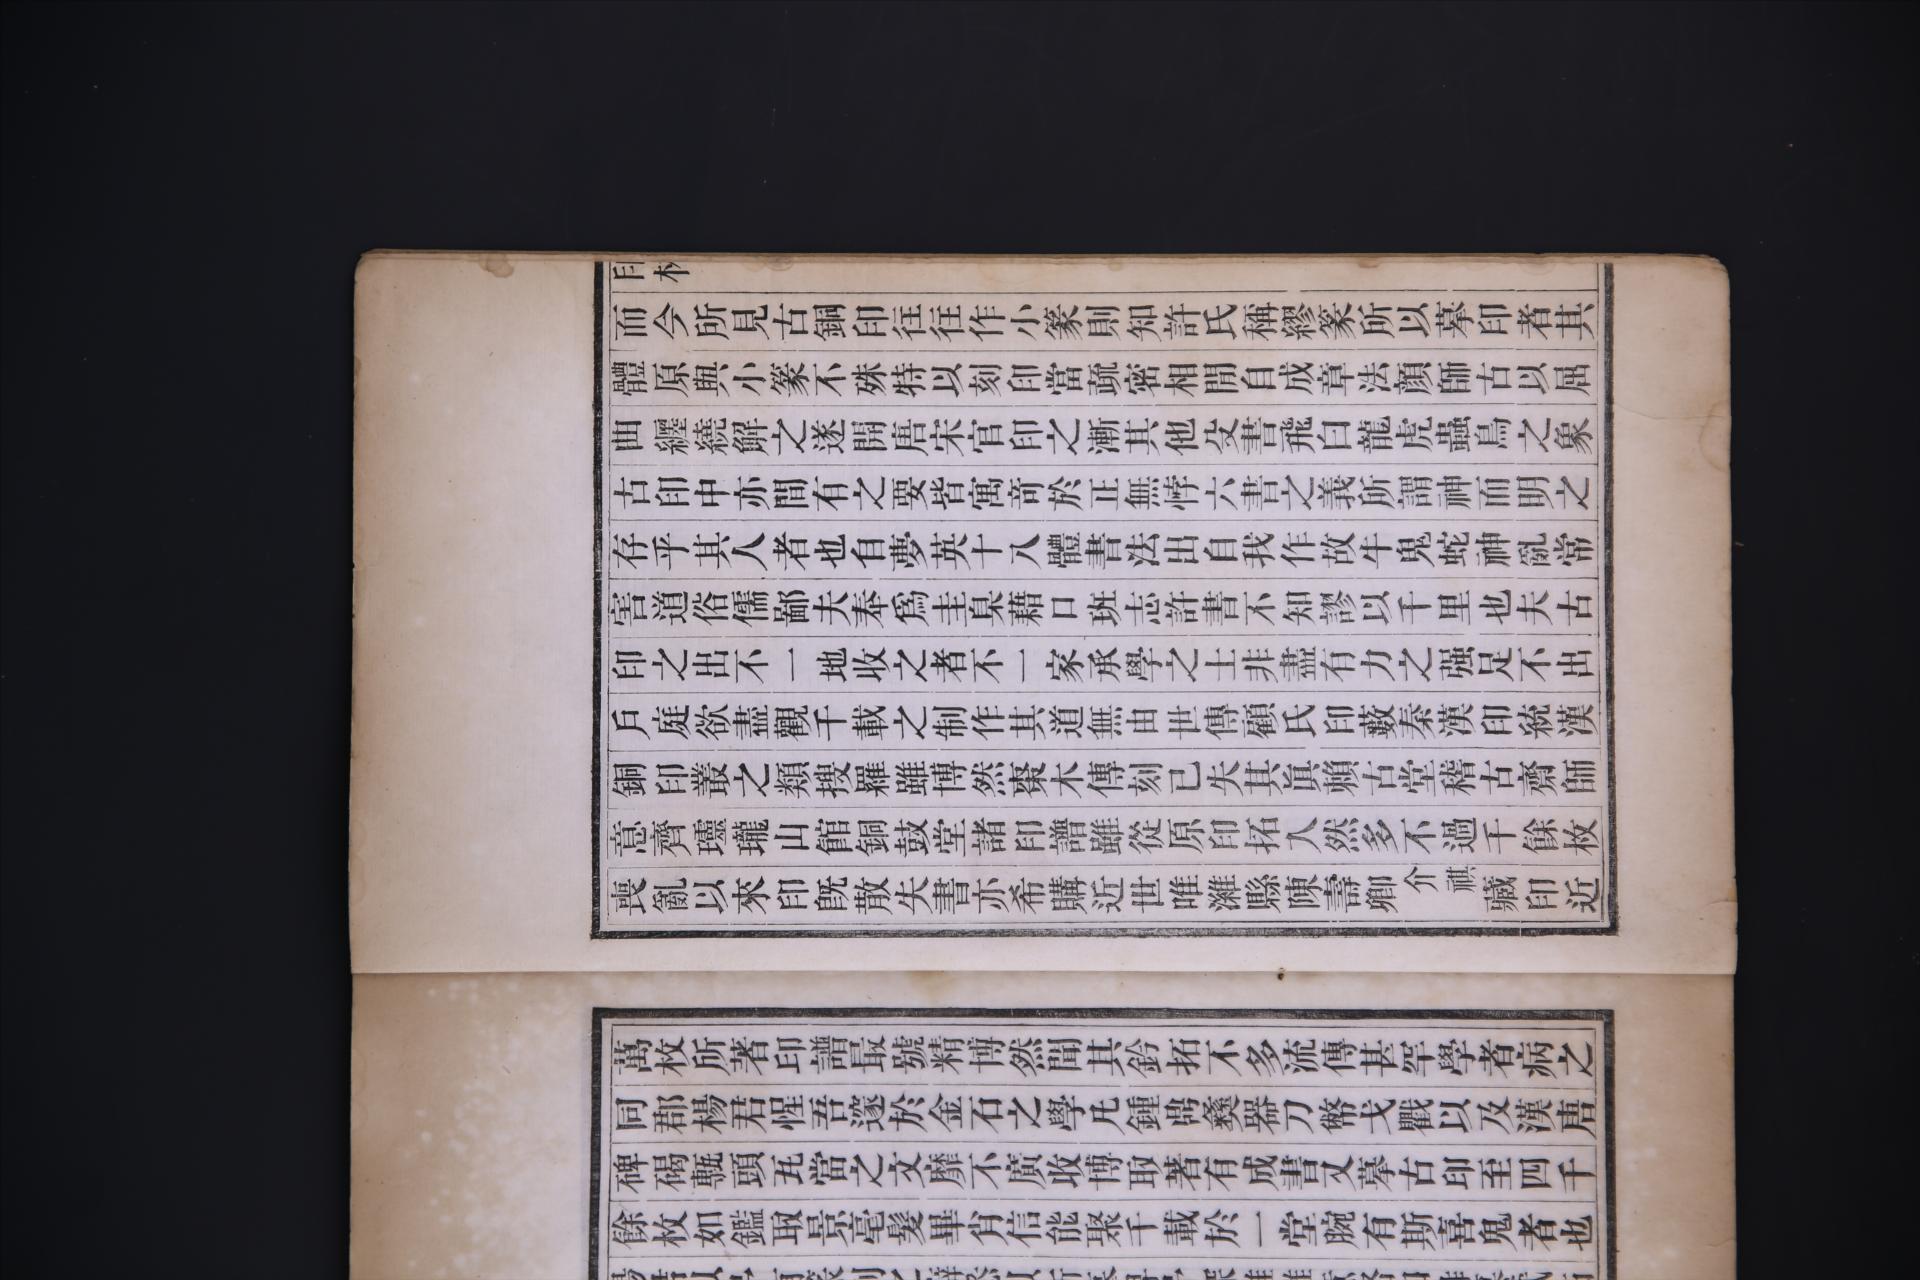 而今所見古銅印往往作小篆則知許氏稱繆篆所以摹印者其
體原與小篆不殊特以刻印當疏密相間自成章法顏師古以屈
曲纏繞解之遂開唐宋官印之漸其他殳書飛白龍虎蟲鳥之象
古印中亦間有之要皆寓奇於正無悖六書之義所謂神而明之
存乎其人者也自夢英十八體書法出自我作故牛鬼蛇神亂常
害道俗儒鄙夫奉爲圭臬藉口班志許書不知謬以千里也夫古
印之出不一地收之者不一家承學之士非盡有力之强足不出
戶庭欲盡觀千載之制作其道無由世傳顧氏印藪秦漢印統漢
銅印叢之類搜羅雖博然棗木傳刻已失其眞賴古堂稽古齋師
意齋瓏山館銅鼓堂諸印譜雖從原印拓入然多不過千餘枚
喪亂以來印旣散失書亦希購近世唯濰縣陳壽卿介祺藏印近
萬枚所著印譜最號精博然聞其鈐拓不多流傳甚罕學者病之
同郡楊君惺吾邃於金石之學凡鍾鼎彝器刀幣戈以及漢唐
碑碣甎頭瓦當之文靡不廣收博取著有成書又摹古印至四千
餘枚如鑑取景毫髮畢肖信能聚千載於一堂腕有斯喜鬼者也